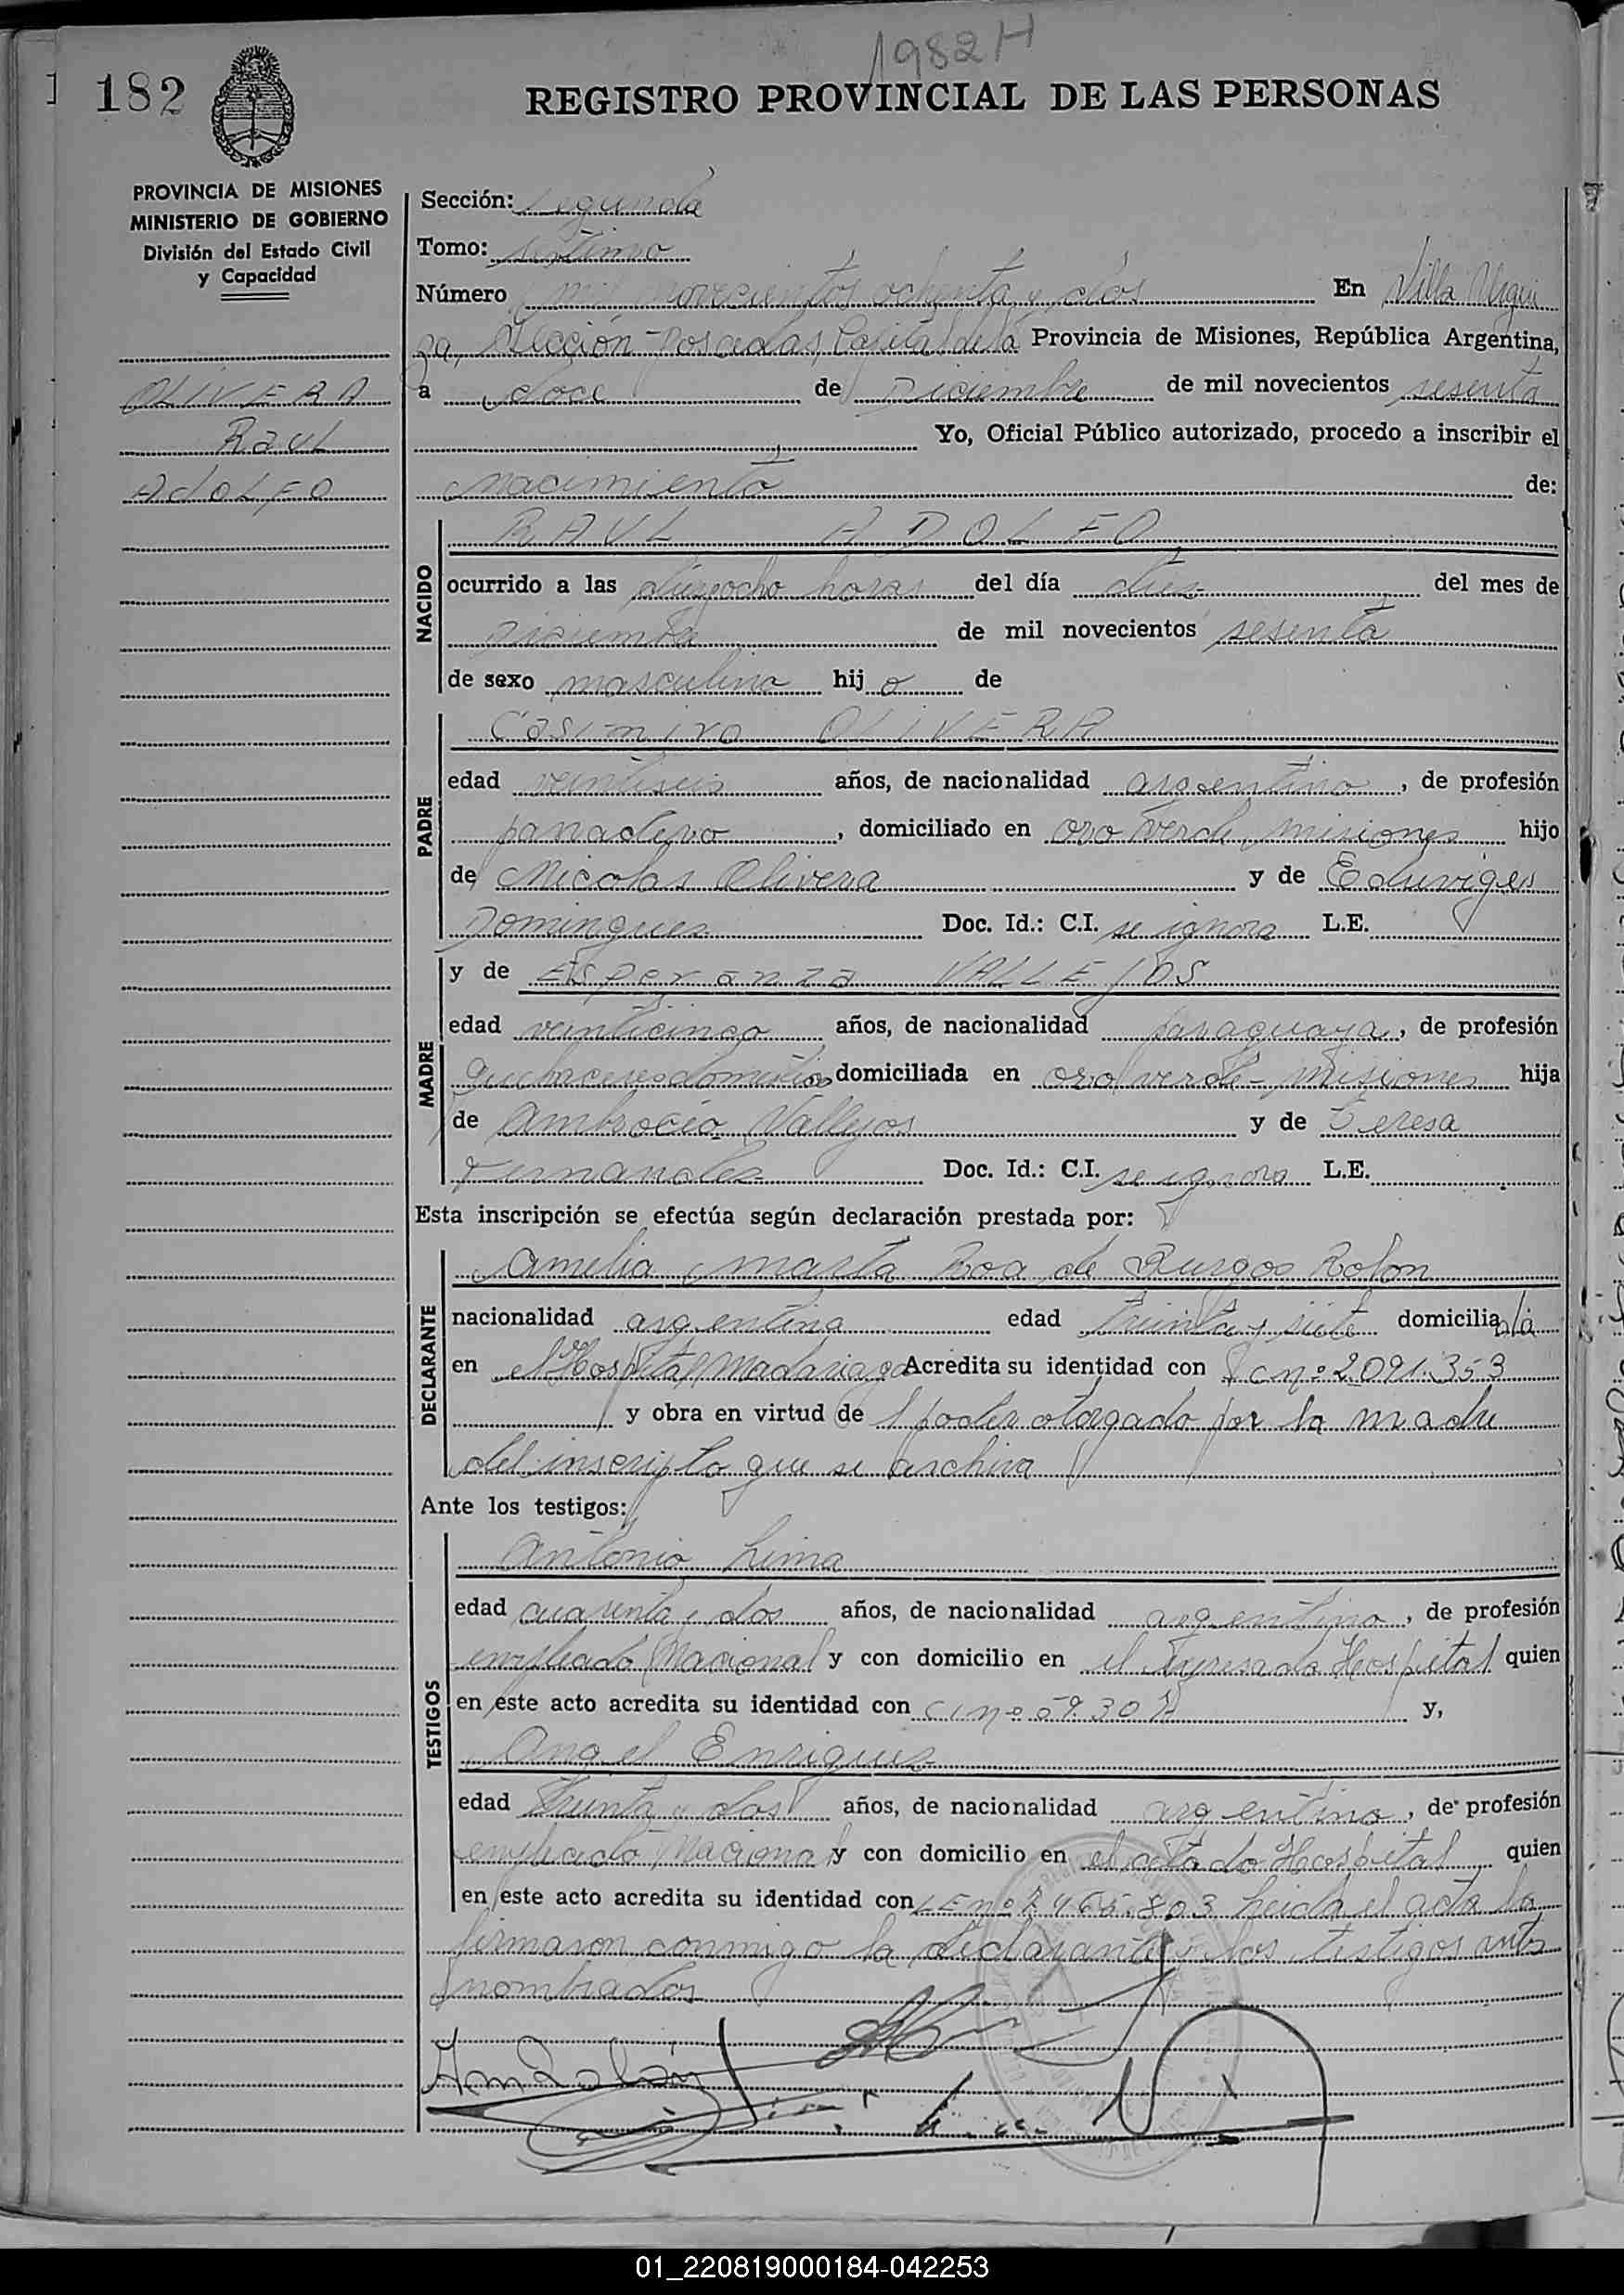 1982 H
182
REGISTRO PROVINCIAL DE LAS PERSONAS
PROVINCIA DE MISIONES
MINISTERIO DE GOBIERNO
División del Estado Civil
y Capacidad
OLIVERA
Raul
AdOLFO
Sección: Segunda
Tomo: séptimo
Número mil novecientos ochenta y dos En Villa Urqui
za, Sección Posadas, Capital de la Provincia de Misiones, República Argentina,
a doce de Diciembre de mil novecientos sesenta
Yo, Oficial Público autorizado, procedo a inscribir el
nacimiento de:
NACIDO
RAUL ADOLFO
ocurrido a las dieziocho horas del día diez del mes de
Diciembre de mil novecientos sesenta
de sexo masculino hij o de
PADRE
Casimiro OLIVERA
edad veintiseis años, de nacionalidad argentino, de profesión
panadero, domiciliado en oro verde, misiones hijo
de Nicolas Olivera y de Eduviges
Domingues Doc. Id.: C.I. se ignora L.E.
MADRE
y de Esperanza VALLEJOS
edad veinticinco años, de nacionalidad paraguaya, de profesión
quehaceres domésticos domiciliada en oro verde - misiones hija
de Ambrocio Vallejos y de Teresa
Fernandez Doc. Id.: C.I. se ignora L.E.
Esta inscripción se efectúa según declaración prestada por:
DECLARANTE
Amelia Marta Roa de Burgos Rolon
nacionalidad argentina edad treinta y siete domicilia da
en el Hospital Madariaga Acredita su identidad con L c nº 2.091.353
y obra en virtud de l poder otorgado por la madre
del inscripto que se archiva
Ante los testigos:
TESTIGOS
Antonio Lima
edad cuarenta y dos años, de nacionalidad argentino, de profesión
empleado Nacional y con domicilio en el expresado Hospital quien
en este acto acredita su identidad con C I nº 59.30 y,
Angel Enriquez
edad treinta y dos años, de nacionalidad argentino, de profesión
empleado Nacional y con domicilio en el citado Hospital quien
en este acto acredita su identidad con LE nº 7.465.803 Leida el acta la
firmaron conmigo la declarante y los testigos antes
nombrados
01_220819000184-042253